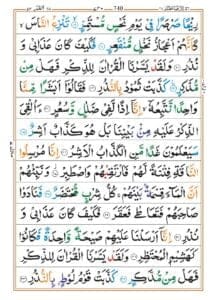 رِيْحًا صَرْصَرًا فِيْ يَوْمِ نَحْسٍ مُّسْتَمِرٍّ ۙ تَنْزِعُ النَّاسَ ۙ
كَاَنَّهُمْ اَعْجَازُ نَخْلٍ مُّنْقَعِرٍ فَكَيْفَ كَانَ عَذَابِيْ وَ
نُذُرِ وَلَقَدْ يَسَّرْنَا الْقُرْاٰنَ لِلذِّكْرِ فَهَلْ مِنْ
مُّدَّكِرٍ كَذَّبَتْ ثَمُوْدُ بِالنُّذُرِ فَقَالُوْۤا اَبَشَرًا مِّنَّا
وَاحِدًا نَّتَّبِعُهٗۤ ۙ اِنَّاۤ اِذًا لَّفِيْ ضَلٰلٍ وَّسُعُرٍ ءَاُلْقِيَ
الذِّكْرُ عَلَيْهِ مِنْۢ بَيْنِنَا بَلْ هُوَ كَذَّابٌ اَشِرٌ
سَيَعْلَمُوْنَ غَدًا مَّنِ الْكَذَّابُ الْاَشِرُ اِنَّا مُرْسِلُوا
النَّاقَةِ فِتْنَةً لَّهُمْ فَارْتَقِبْهُمْ وَاصْطَبِرْ وَنَبِّئْهُمْ
اَنَّ الْمَآءَ قِسْمَةٌۢ بَيْنَهُمْ ۚ كُلُّ شِرْبٍ مُّحْتَضَرٌ فَنَادَوْا
صَاحِبَهُمْ فَتَعَاطٰى فَعَقَرَ فَكَيْفَ كَانَ عَذَابِيْ وَ
نُذُرِ اِنَّاۤ اَرْسَلْنَا عَلَيْهِمْ صَيْحَةً وَّاحِدَةً فَكَانُوْا
كَهَشِيْمِ الْمُحْتَظِرِ وَلَقَدْ يَسَّرْنَا الْقُرْاٰنَ لِلذِّكْرِ
فَهَلْ مِنْ مُّدَّكِرٍ كَذَّبَتْ قَوْمُ لُوْطٍۭ بِالنُّذُرِ